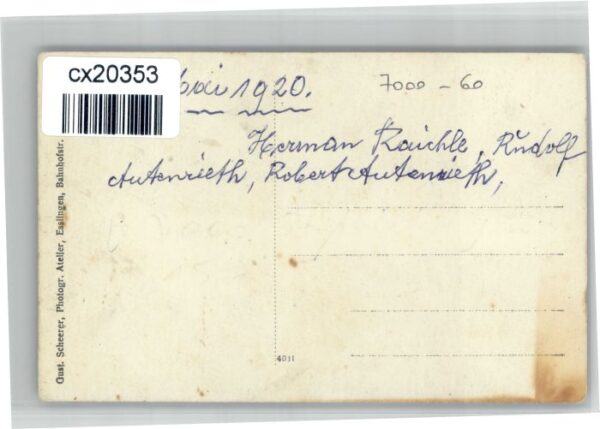 cx20353
Mai 1920.
7000 - 60
Herman Raichle, Rudolf
Autenrieth, Robert Autenrieth,
Gust. Scheerer, Photogr. Atelier, Esslingen, Bahnhofstr.
4011